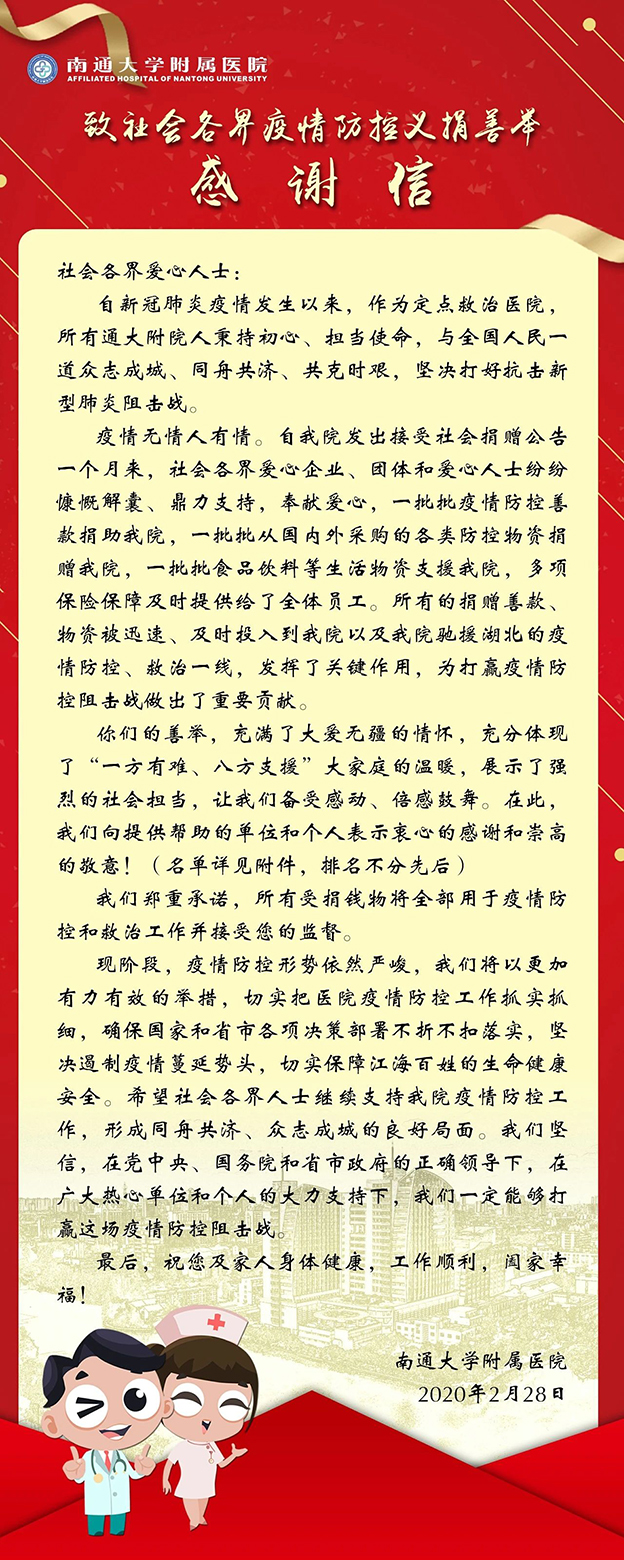 南通大学附属医院
AFFILIATED HOSPITAL OF NANTONG UNIVERSITY
致社会各界疫情防控义捐善举
感谢信
社会各界爱心人士：
自新冠肺炎疫情发生以来，作为定点救治医院，
所有通大附院人秉持初心、担当使命，与全国人民一
道众志成城、同舟共济、共克时艰，坚决打好抗击新
型肺炎阻击战。
疫情无情人有情。自我院发出接受社会捐赠公告
一个月来，社会各界爱心企业、团体和爱心人士纷纷
慷慨解囊、鼎力支持，奉献爱心，一批批疫情防控善
款捐助我院，一批批从国内外采购的各类防控物资捐
赠我院，一批批食品饮料等生活物资支援我院，多项
保险保障及时提供给了全体员工。所有的捐赠善款、
物资被迅速、及时投入到我院以及我院驰援湖北的疫
情防控、救治一线，发挥了关键作用，为打赢疫情防
控阻击战做出了重要贡献。
你们的善举，充满了大爱无疆的情怀，充分体现
了“一方有难、八方支援”大家庭的温暖，展示了强
烈的社会担当，让我们备受感动、倍感鼓舞。在此，
我们向提供帮助的单位和个人表示衷心的感谢和崇高
的敬意！（名单详见附件，排名不分先后）
我们郑重承诺，所有受捐钱物将全部用于疫情防
控和救治工作并接受您的监督。
现阶段，疫情防控形势依然严峻，我们将以更加
有力有效的举措，切实把医院疫情防控工作抓实抓
细，确保国家和省市各项决策部署不折不扣落实，坚
决遏制疫情蔓延势头，切实保障江海百姓的生命健康
安全。希望社会各界人士继续支持我院疫情防控工
作，形成同舟共济、众志成城的良好局面。我们坚
信，在党中央、国务院和省市政府的正确领导下，在
广大热心单位和个人的大力支持下，我们一定能够打
赢这场疫情防控阻击战。
最后，祝您及家人身体健康，工作顺利，阖家幸
福！
南通大学附属医院
2020年2月28日